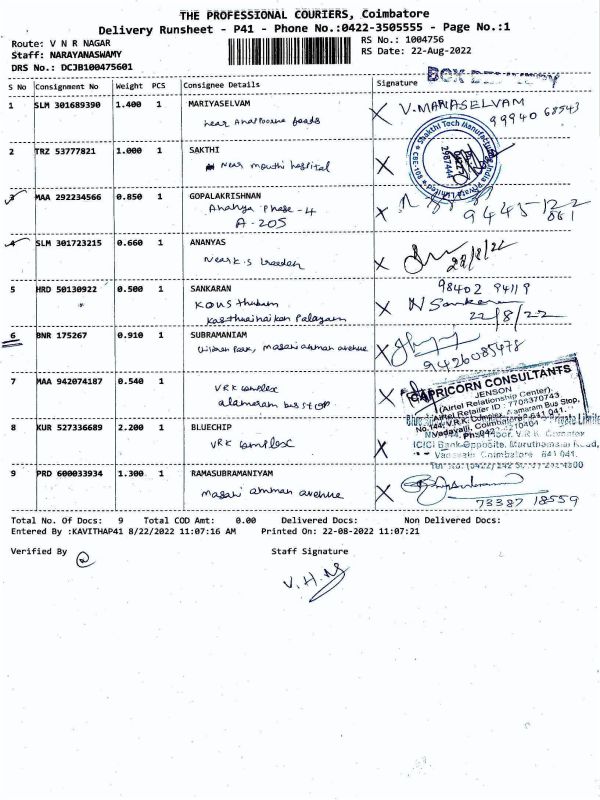 THE PROFESSIONAL COURIERS, Coimbatore
Delivery Runsheet - P41 - Phone No.:0422-3505555 - Page No.:1
Route: V N R NAGAR
RS No.: 1004756
Staff: NARAYANASWAMY
RS Date: 22-Aug-2022
DRS No.: DCJB100475601
S No Consignment No Weight PCS Consignee Details Signature
1 SLM 301689390 1.400 1 MARIYASELVAM V. MARIASELVAM
near
99940 68543
2 TRZ 53777821 1.000 1 SAKTHI
Near hospital
Shakthi Tech Manufacturing India Private Limited
3 MAA 292234566 0.850 1 GOPALAKRISHNAN
Ananya Phase-4
A-205
9445122
861
4 SLM 301723215 0.660 1 ANANYAS
Near K.S
5 HRD 50130922 0.500 1 SANKARAN 98402 94119
Kousthubam N Sankaran
22/8/22
6 BNR 175267 0.910 1 SUBRAMANIAM
Park, Masani amman avenue
9426085478
7 MAA 942074187 0.540 1
VRK complex
alamaram bus stop
CAPRICORN CONSULTANTS
JENSON
(Airtel Relationship Center),
Airtel Retailer ID : 7708370743
No.144, V.R.K. Complex, Alamaram Bus Stop,
Vadavalli, Coimbatore - 641 041.
8 KUR 527336689 2.200 1 BLUECHIP
VRK complex
Private Limite
ICICI Bank Opposite, Maruthamalai Road,
Vadavalli Coimbatore 641 041.
9 PRD 600033934 1.300 1 RAMASUBRAMANIYAM
Masani amman avenue
73387 18559
Total No. Of Docs: 9 Total COD Amt: 0.00 Delivered Docs: Non Delivered Docs:
Entered By :KAVITHAP41 8/22/2022 11:07:16 AM Printed On: 22-08-2022 11:07:21
Verified By Staff Signature